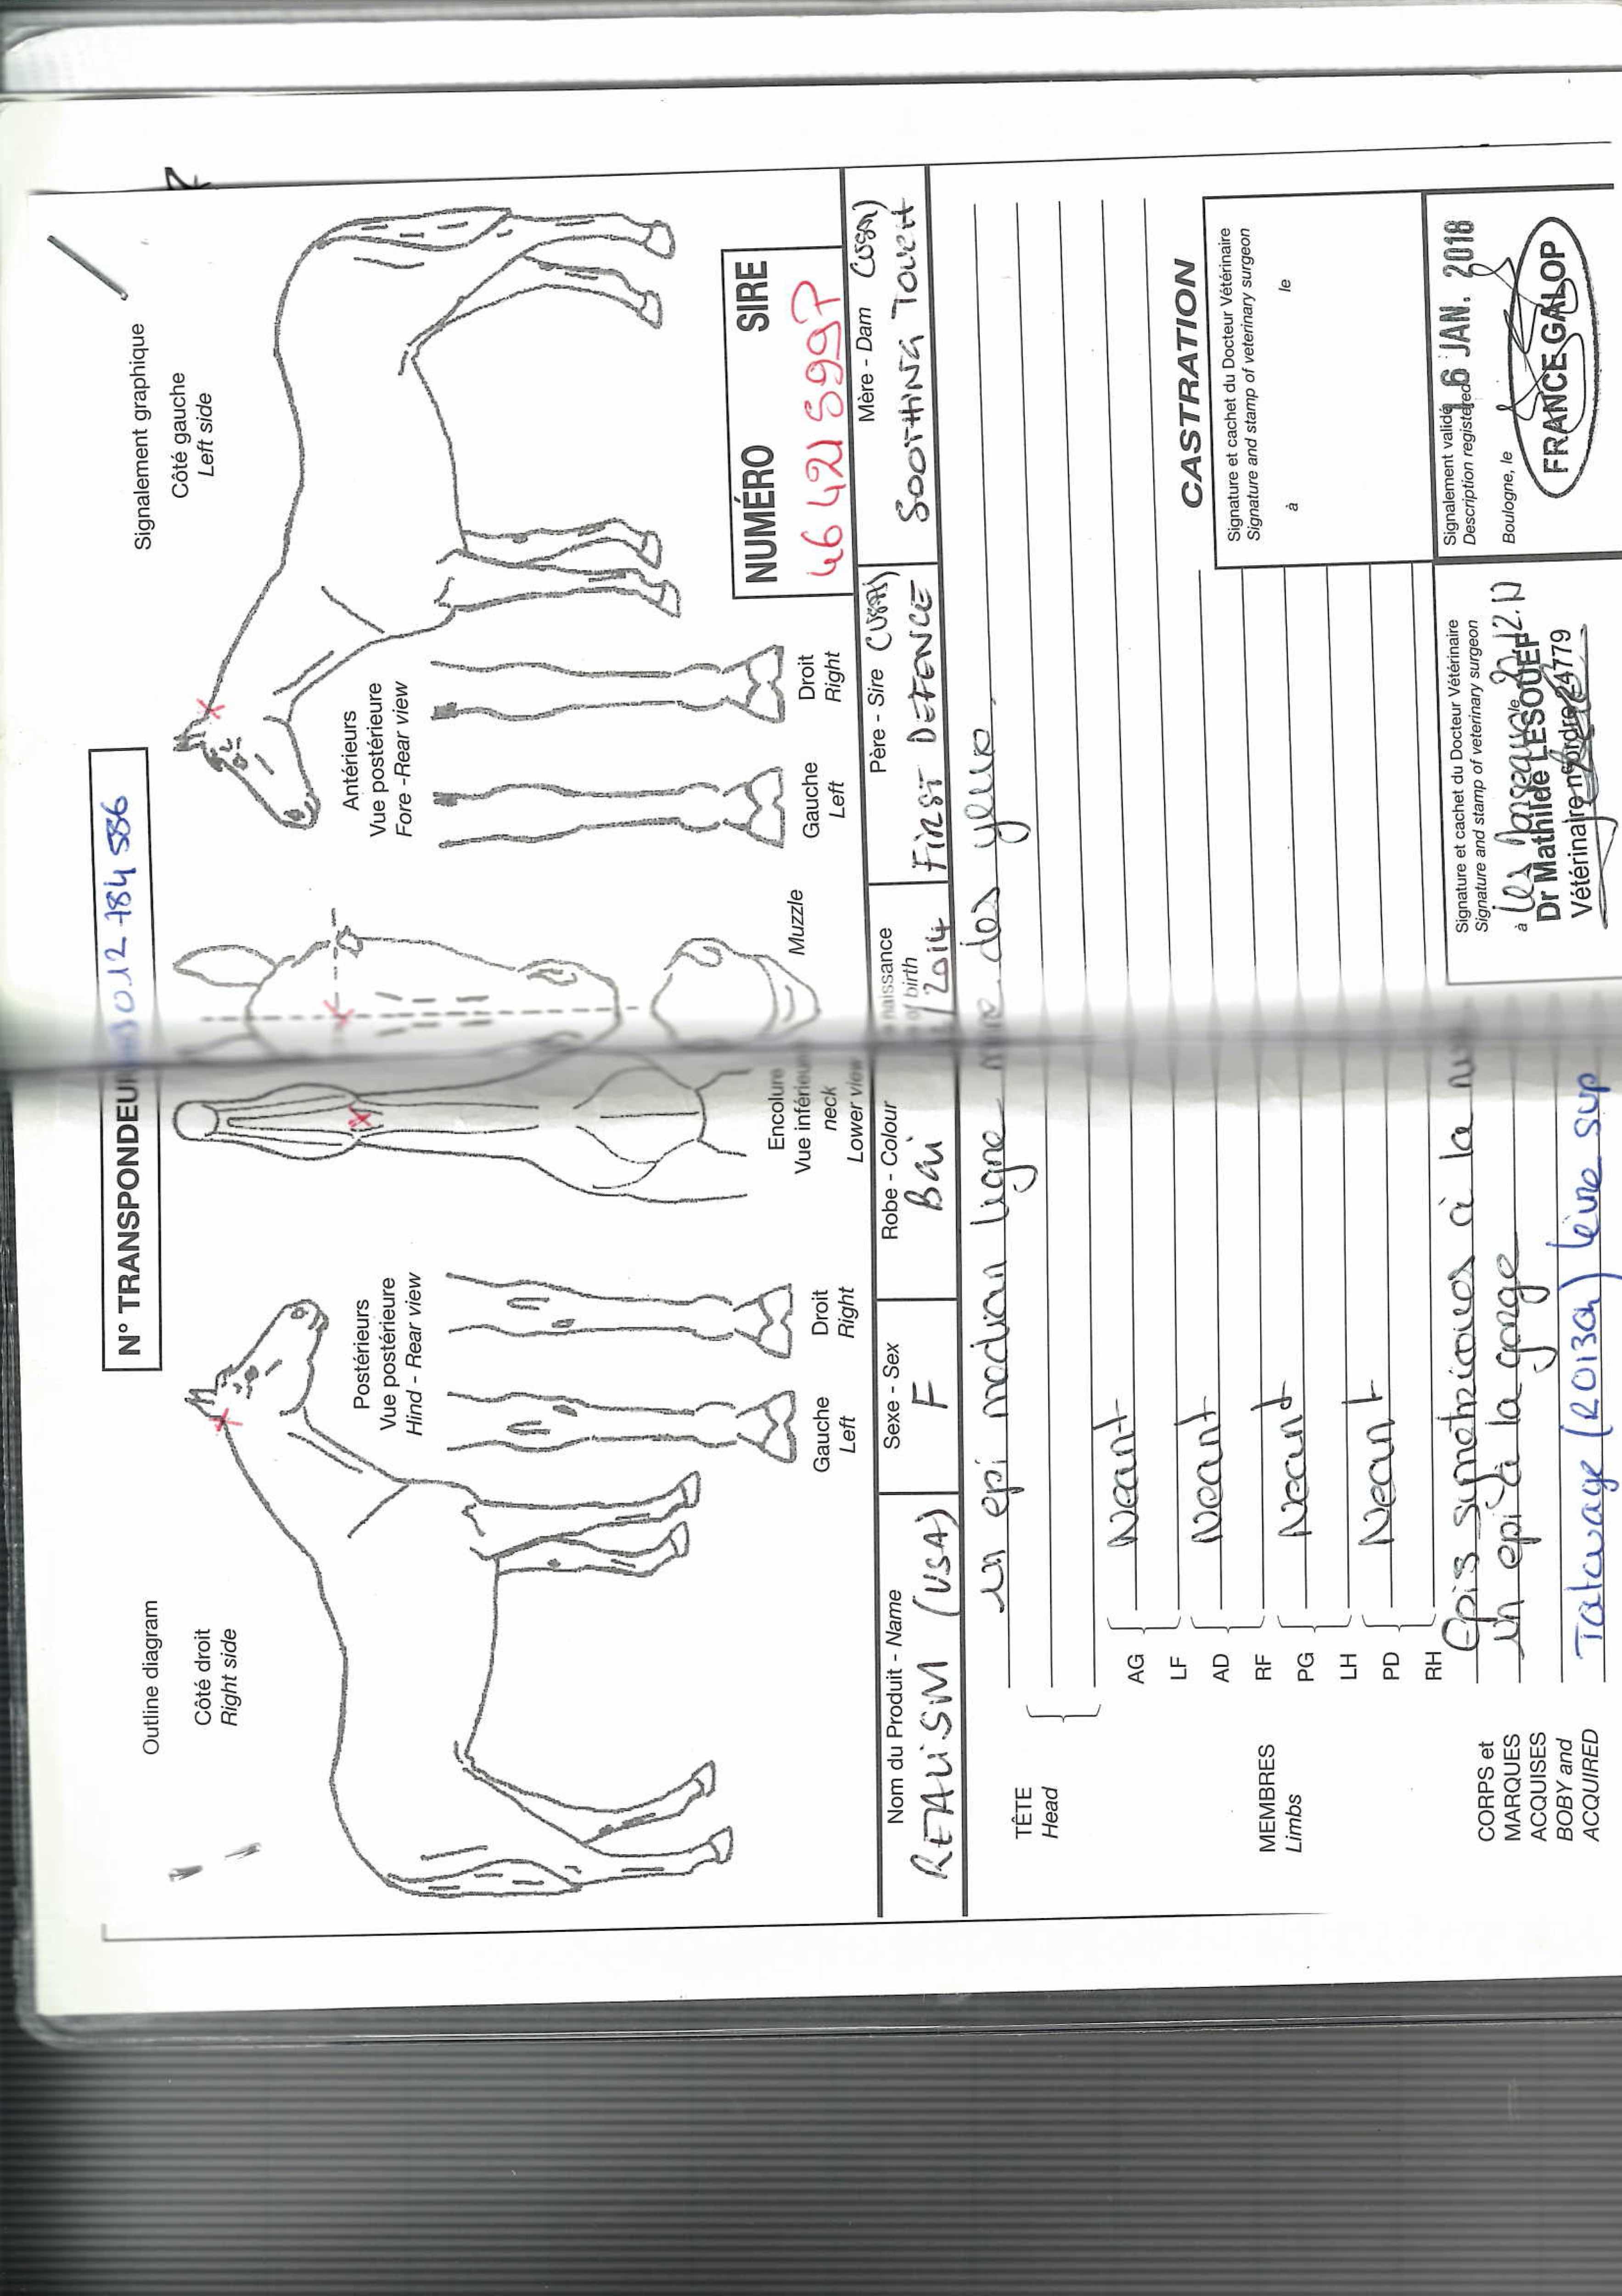 N° TRANSPONDEU 012 784 586
Outline diagram
Signalement graphique
Côté droit
Right side
Côté gauche
Left side
Postérieurs
Vue postérieure
Hind - Rear view
Antérieurs
Vue postérieure
Fore -Rear view
Gauche
Left
Droit
Right
Encolure
Vue inférieu
neck
Lower view
Muzzle
Gauche
Left
Droit
Right
NUMÉRO SIRE
Nom du Produit - Name
REALISM (USA)
Sexe - Sex
F
Robe - Colour
Bai
naissance
of birth
/ 2014
Père - Sire (USA)
FIRST DEFENCE
Mère - Dam (USA)
SOOTHING TOUCH
TÊTE
Head
un epi median ligne des yeux.
MEMBRES
Limbs
AG
LF
Neant
AD
RF
Neant
PG
LH
Neant
PD
RH
Neant
CORPS et
MARQUES
ACQUISES
BOBY and
ACQUIRED
Epis symetriques à la
un epi à la gorge
Tatouage (R013a) lèvre sup
CASTRATION
Signature et cachet du Docteur Vétérinaire
Signature and stamp of veterinary surgeon
à le
Signature et cachet du Docteur Vétérinaire
Signature and stamp of veterinary surgeon
à
Dr Mathilde LESOUEF
Vétérinaire n°ordre 24779
Signalement validé
Description registered
16 JAN. 2018
Boulogne, le
FRANCE GALOP